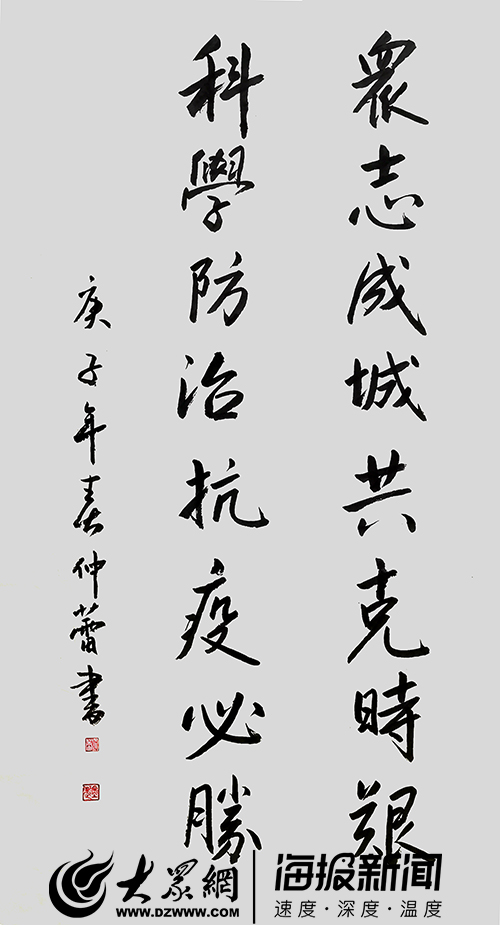 衆志成城共克時艱
科學防治抗疫必勝
庚子年春仲蕾書
大眾網
WWW.DZWWW.COM
海报新闻
速度·深度·温度